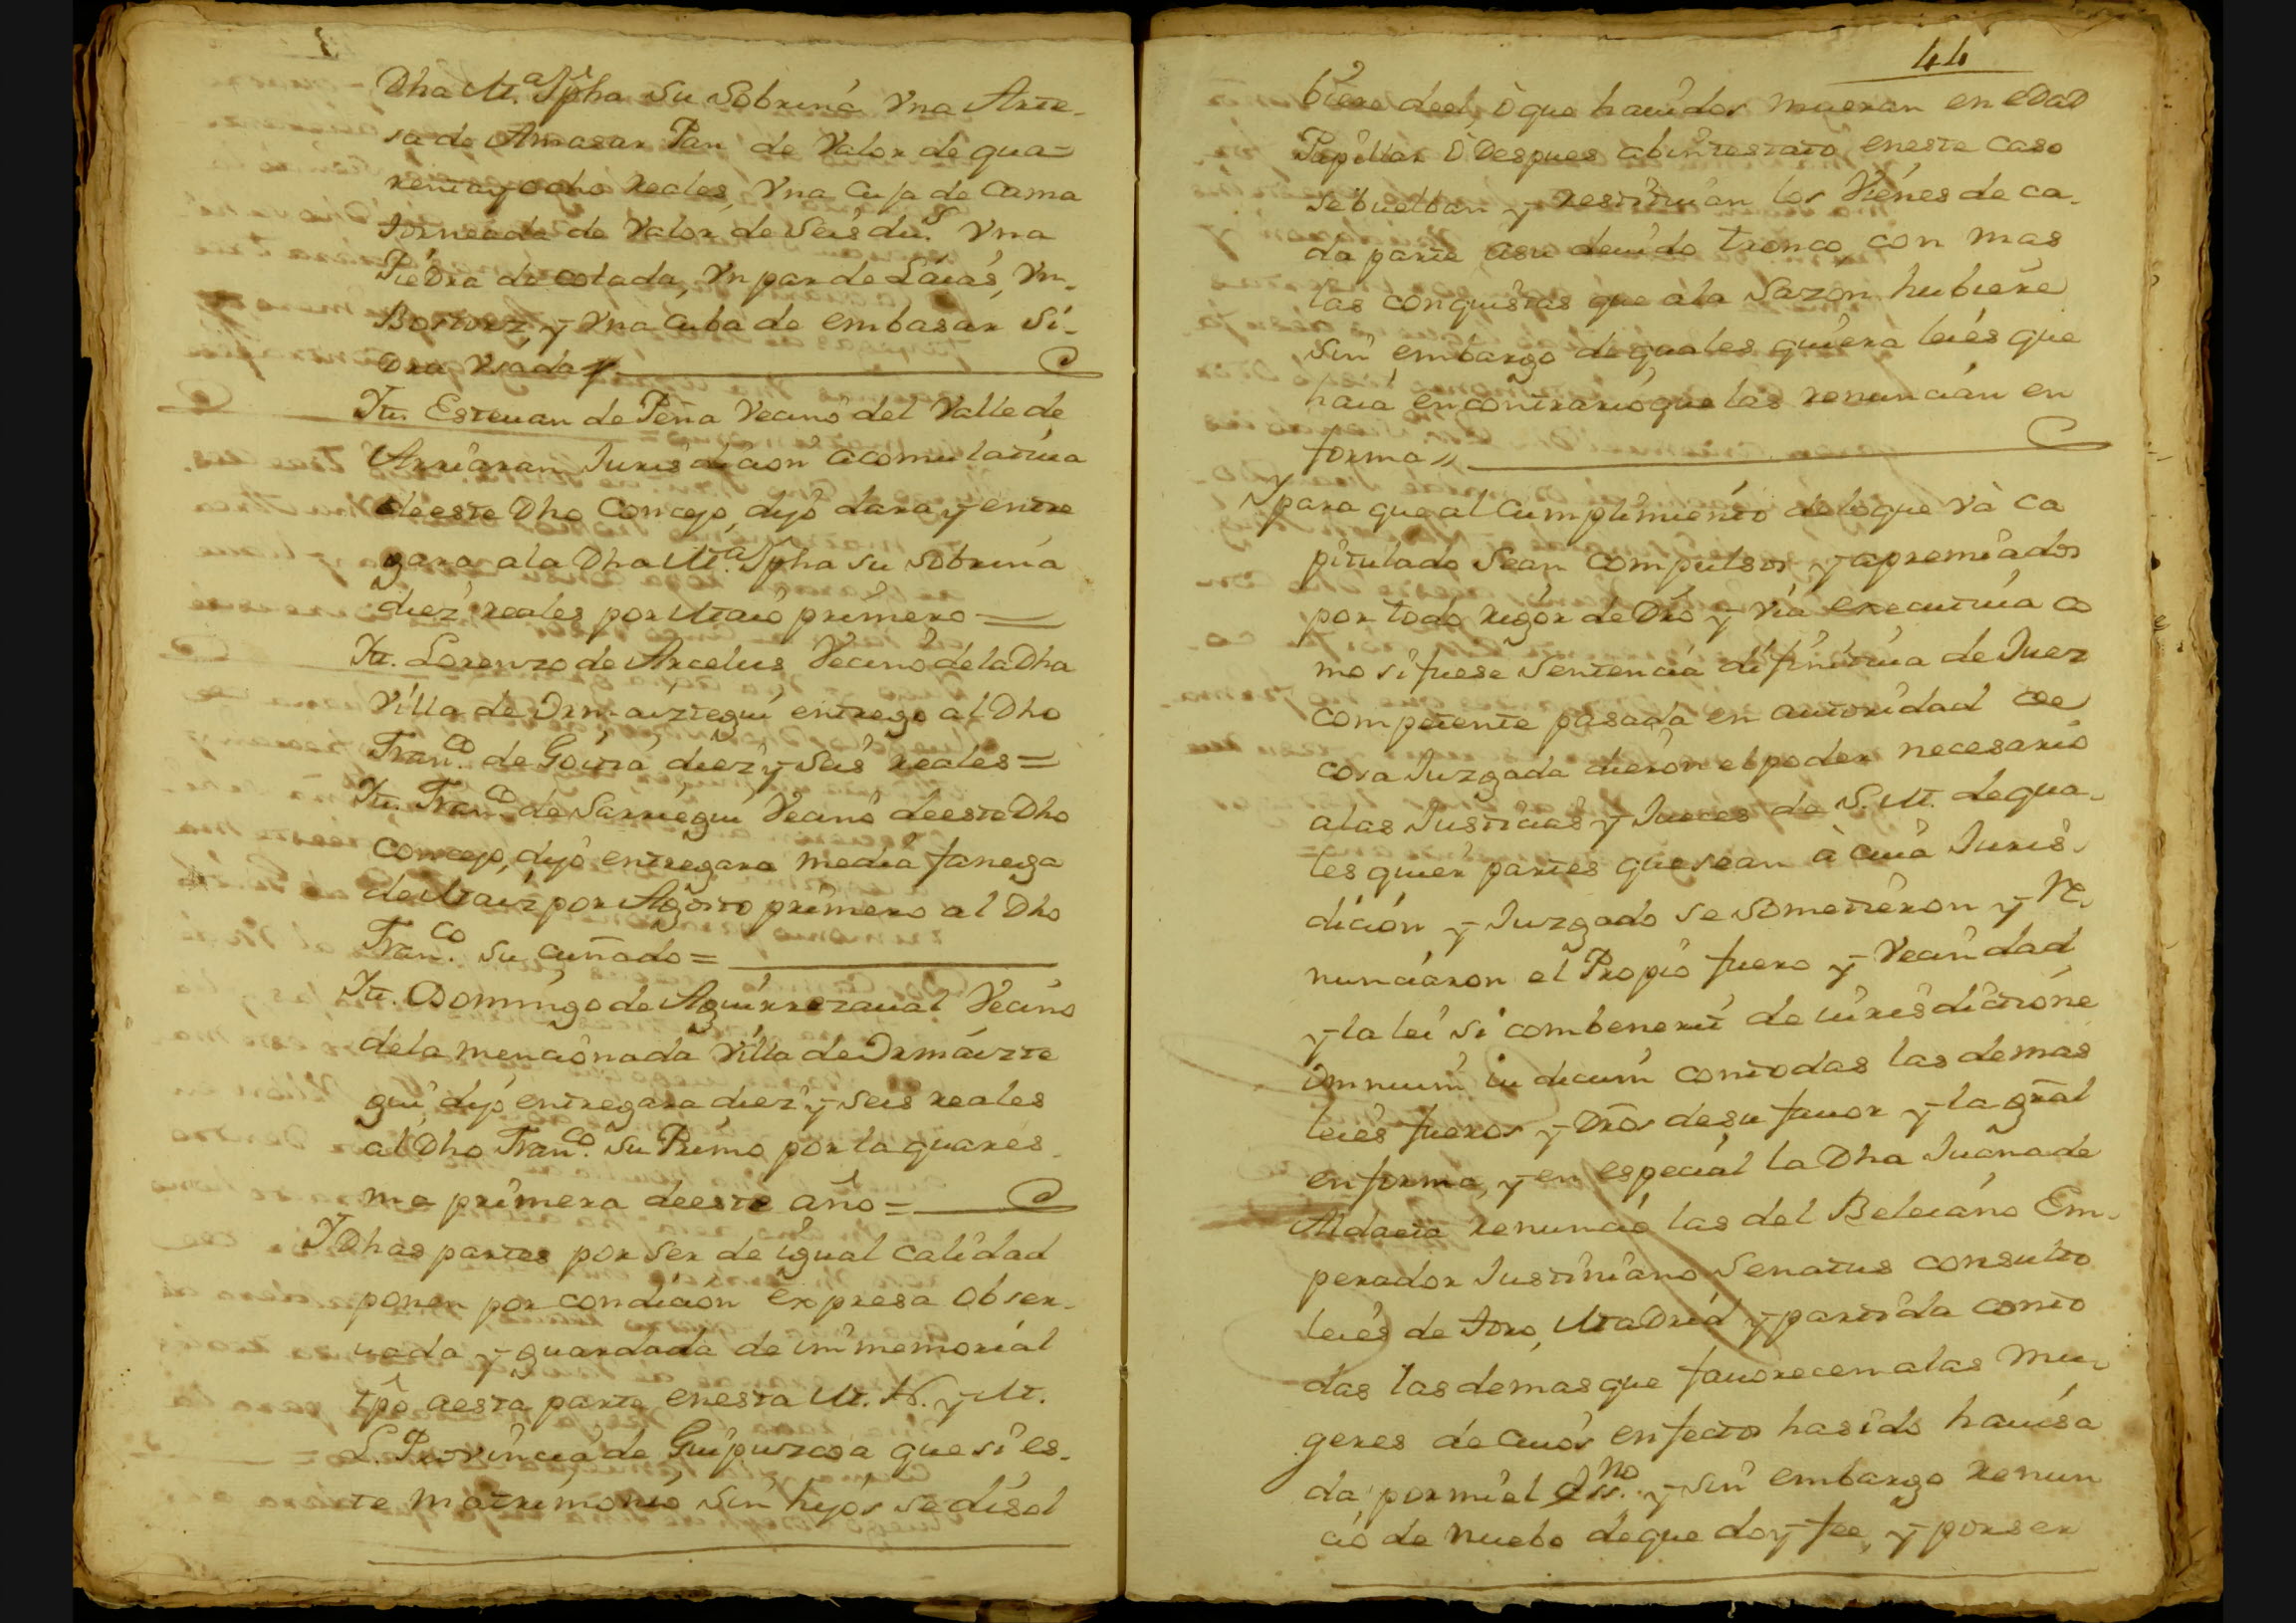 Dha M.ª Jpha su Sobrina Vna Arte-
sa de Amasar Pan de Valor de qua=
renta y ocho reales, Vna Cuja de Cama
torneada de Valor de Seis du.s Vna
Piedra de colada, Vn par de Laias, Vn
Bortuz, y Vna Cuba de embasar Si-
dra Vsada //
Itt. Esteuan de Peña Vecino del Valle de
Arriaran Jurisdicion acomulatiua
de este Dho Concejo, dijo dara y entre
gara a la Dha M.ª Jpha su sobrina
diez reales por Maio primero =
Itt. Lorenzo de Arcelus Vecino de la Dha
Villa de Ormaiztegui entrego al Dho
Fran.co de Goiria diez y seis reales =
Itt. Fran.co de Sarriegui Vecino de este Dho
Concejo, dijo entregara media fanega
de Maiz por Agosto primero al Dho
Fran.co su cuñado =
Itt. Domingo de Aguirrezaual Vecino
de la mencionada Villa de Ormaizte
gui dijo entregara diez y seis reales
al Dho Fran.co su Primo por la quares-
ma primera de este año =
Y Dhas partes por ser de igual calidad
ponen por condicion expresa obser-
uada y guardada de immemorial
tpô aesta parte en esta M. N. y M.
L. Provincia de Guipuzcoa que si es-
te matrimonio sin hijos se disol
44
biere de el, ò que hauidos mueran en edad
Pupillar ò Despues abintestato en este caso
se buelban y restituian los Vienes de ca-
da parte asu deuido tronco, con mas
las conquistas que ala Sazon hubiere
sin embargo de quales quiera leies que
haia en contrario que las renuncian en
forma //
Y para que al Cumplimiento de lo que và ca
pitulado Sean compulsos y apremiados
por todo rigor de Dro y via executiua co
mo si fuese Sentencia difinitiua de Juez
competente pasada en autoridad de
cosa Juzgada dieron el poder necesario
a las Justicias y Jueces de S. M. de qua-
les quier partes que sean à cuia Juris-
dicion y Juzgado se sometieron y re-
nunciaron el Propio fuero y Vecindad
y la lei si combenerit de iurisdictione
omnium iudicum con todas las demas
leies fueros y Dros de su fauor y la gral
en forma, y en especial la Dha Juana de
Aldaeta renunció las del Beleiano Em-
perador Justiniano Senatus consulto
leies de toro, Madrid y partida con to
das las demas que fauorecen a las mu-
geres de cuios enfectos ha sido hauisa
da por mi el Ess.no y sin embargo renun
ció de nuebo de que doy fee, y por ser